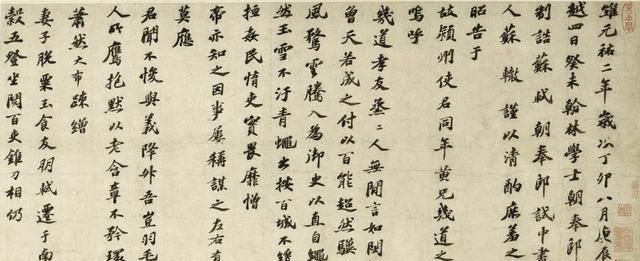 維元祐二年歲次丁卯八月庚辰
越四日癸未翰林學士朝奉郎
制誥蘇軾朝奉郎試中書
人蘇轍謹以清酌庶羞之
昭告于
故潁州使君同年黃兄幾道之
嗚呼
幾道孝友烝烝人無閒言如閔
曾天若成之付以百能超然驥
風騖雲騰入為御史以直自繩
然玉雪不汙青蠅出按百城不緩
捶姦民惰吏實畏靡憎
帝亦知之因事屢稱謀之左右有
莫應
君聞不悛與義降升吾豈羽毛
人所鷹抱默以老含章不矜環
蕭然大布疎繒
妻子脫粟玉食友朋軾遷于南
穀五登坐閱百吏錐刀相仍